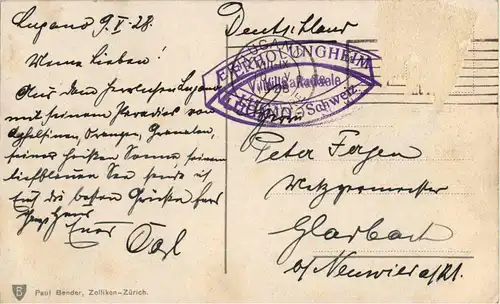 Lugano 9.V.28.
Meine Lieben!
Aus dem herrlichen Lugano
mit seinem Paradies von
Apfelsinen, Orangen, Granaten,
seiner heißen Sonne, seinem
lieblblauen See sende ich
Euch die besten Grüße fürs
ganze Haus
Euer
Deutschland
ERHOLUNGSHEIM
LUGANO (Schweiz)
Herrn
Peter Fergen
Metzgermeister
Gladbach
b/ Neuwied a/Rh.
B
Paul Bender, Zollikon-Zürich.